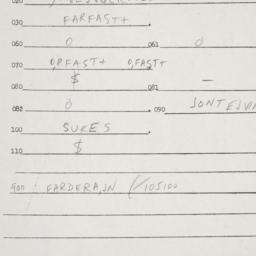 030 FARFAST+
060 0 061 0
070 O,FAST+ O,FAST+
080 $ 081 —
082 0 090
100 SURES
110 $
900 FARDERA,JN (/105100